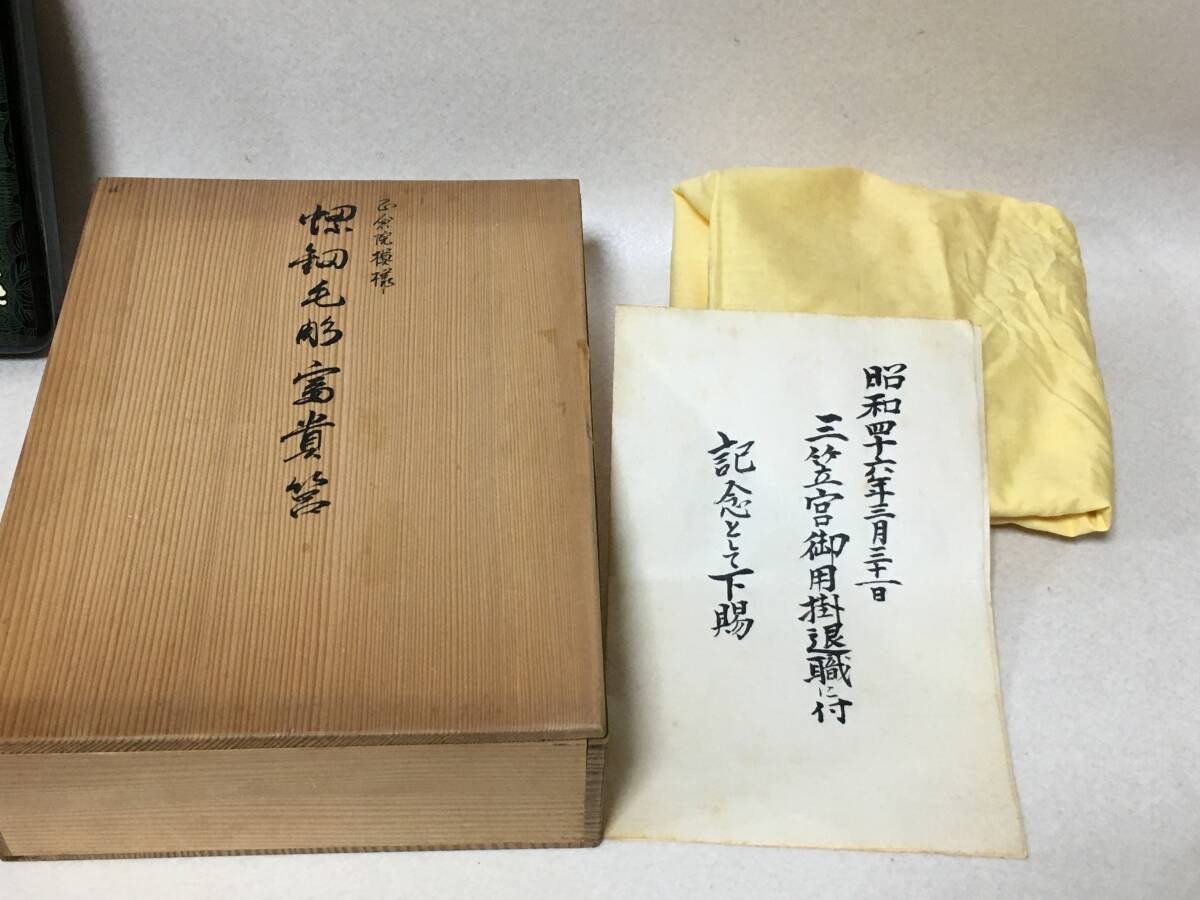 正倉院模様
螺鈿毛彫富貴筥
昭和四十六年三月三十一日
三笠宮御用掛退職に付
記念として下賜